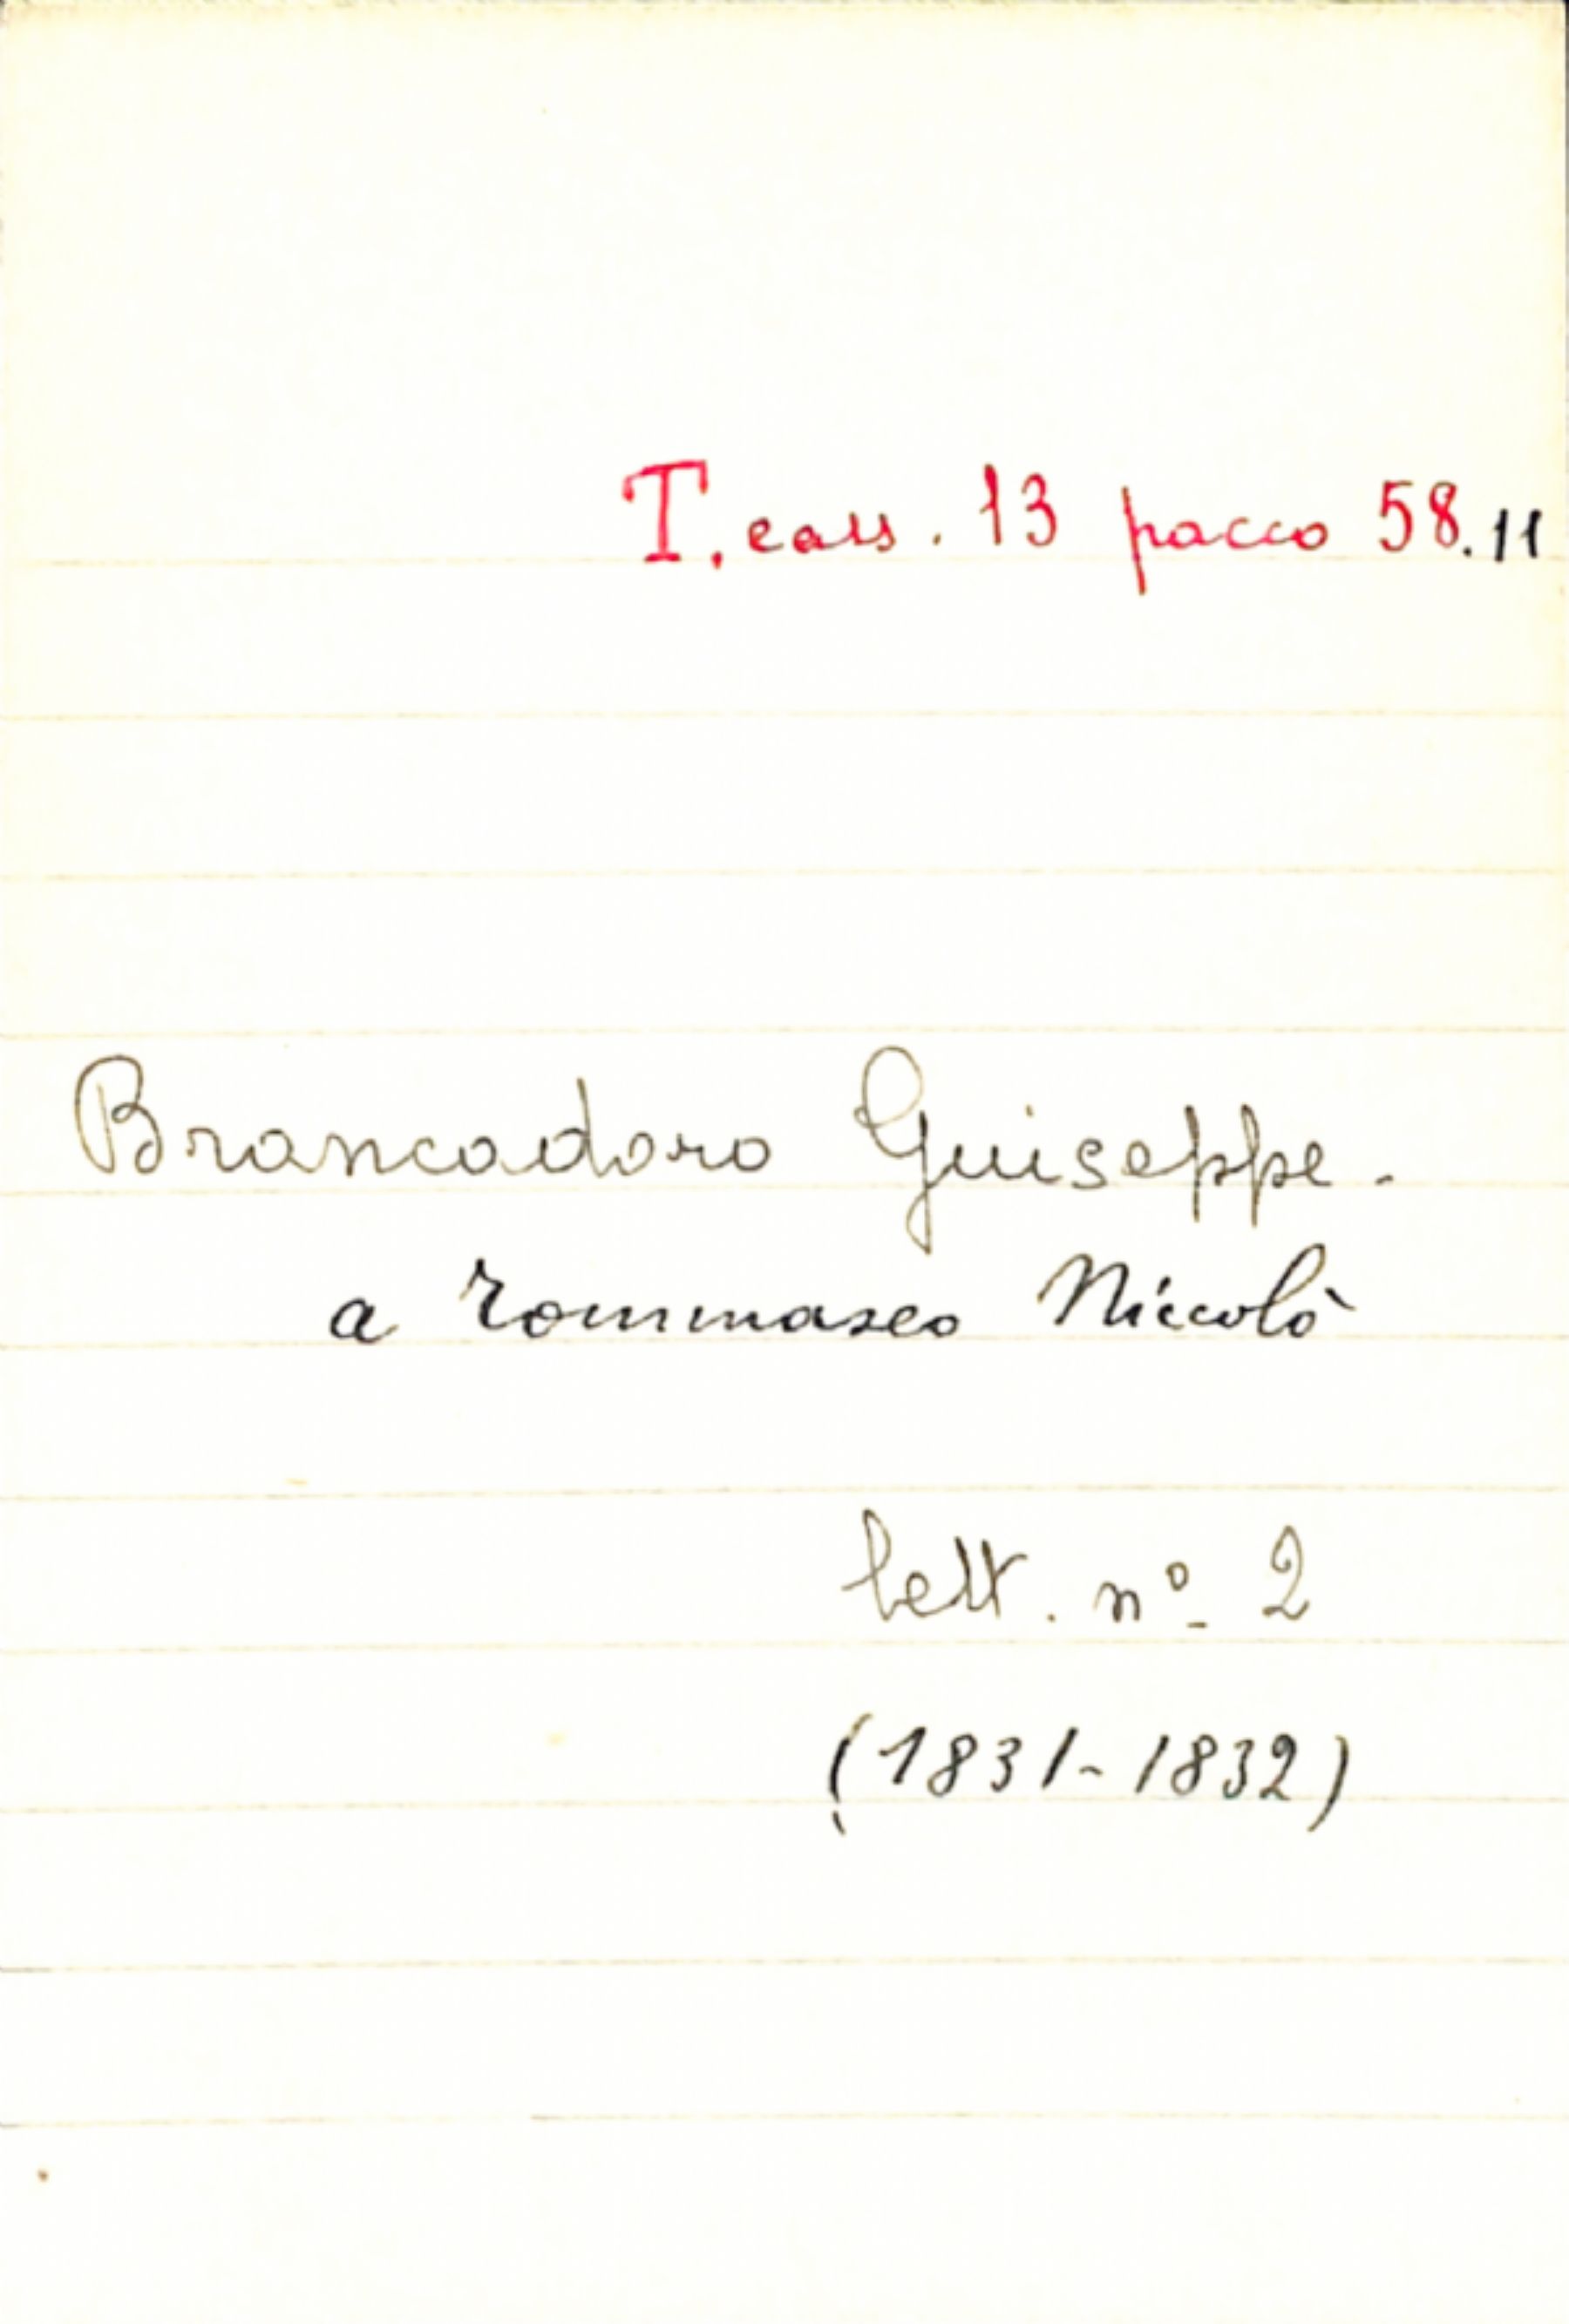 T. cass. 13 pacco 58.11
Brancadoro Giuseppe.
a Tommaseo Niccolò
lett. nº 2
(1831-1832)